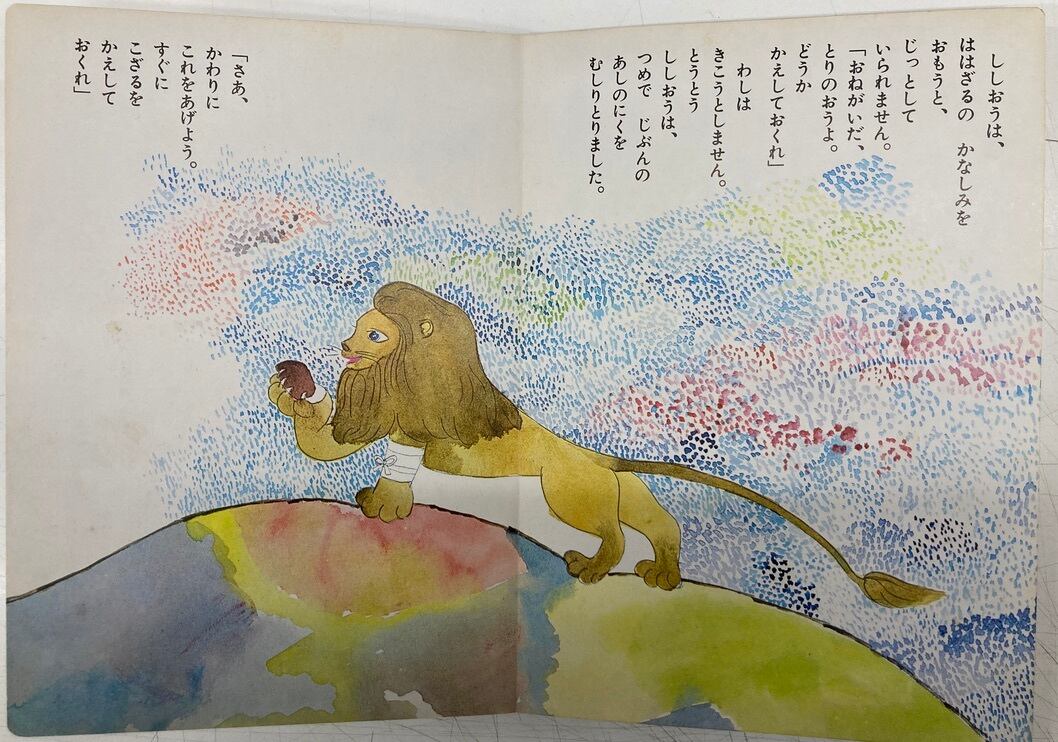 ししおうは、
ははざるの　かなしみを
おもうと、
じっとして
いられません。
「おねがいだ、
とりのおうよ。
どうか
かえしておくれ」
わしは
きこうとしません。
とうとう
ししおうは、
つめで　じぶんの
あしのにくを
むしりとりました。
「さあ、
かわりに
これをあげよう。
すぐに
こざるを
かえして
おくれ」